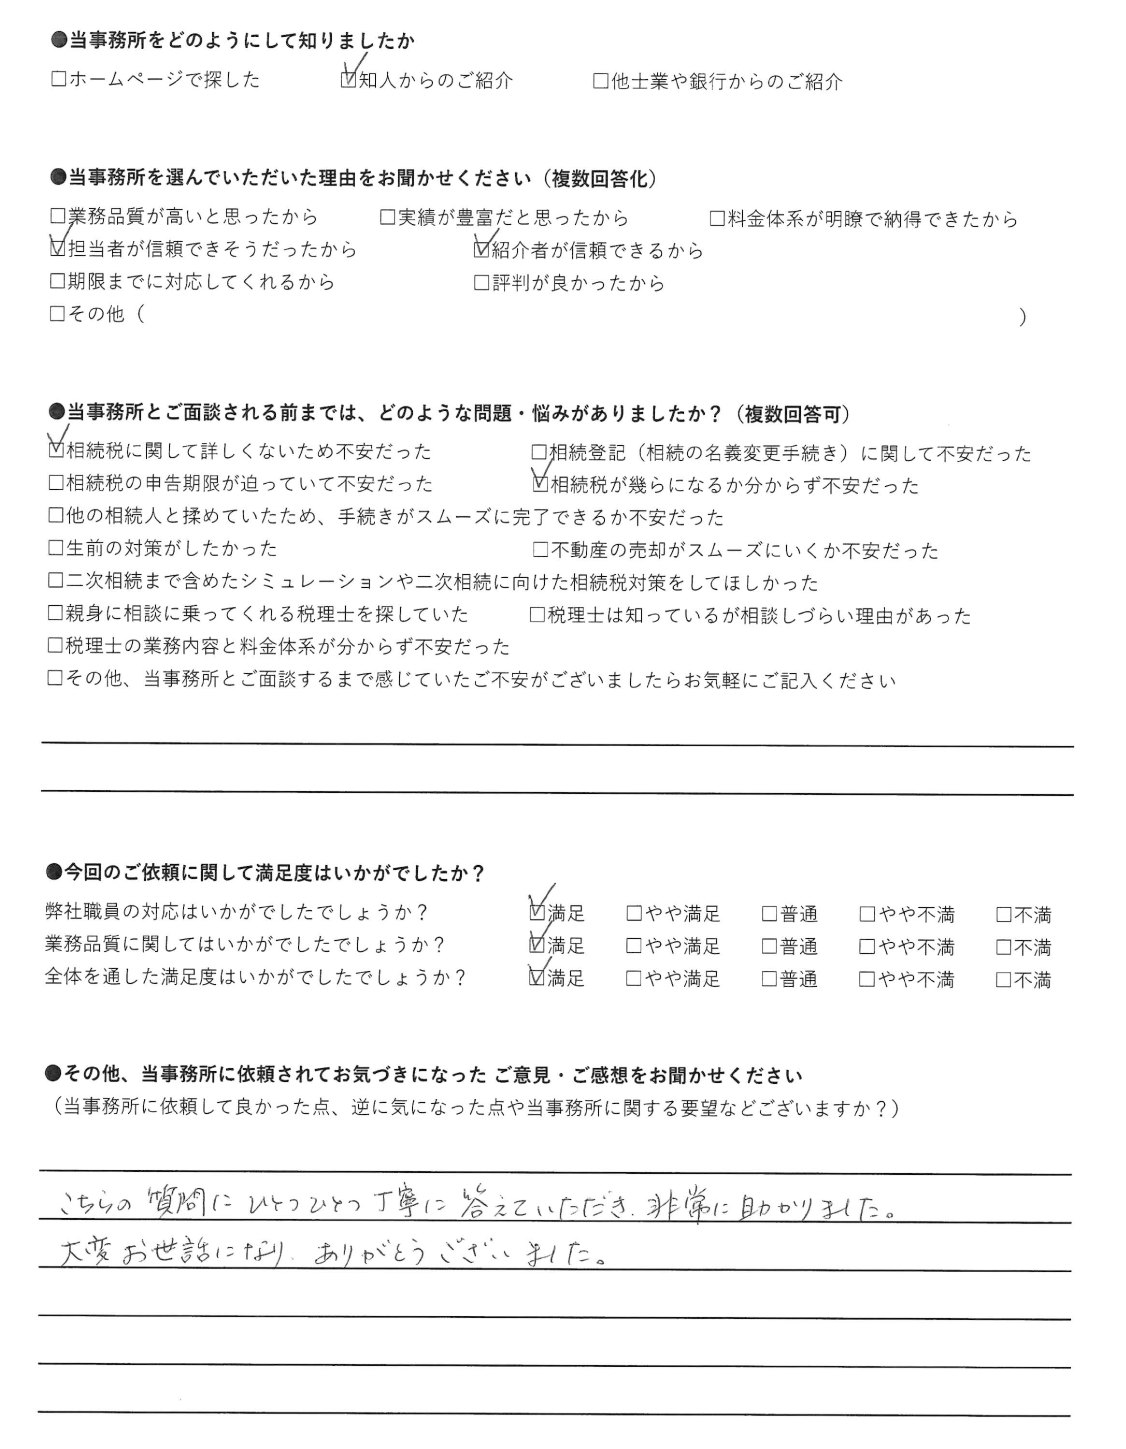 ●当事務所をどのようにして知りましたか
□ホームページで探した ☑知人からのご紹介 □他士業や銀行からのご紹介
●当事務所を選んでいただいた理由をお聞かせください（複数回答化）
□業務品質が高いと思ったから □実績が豊富だと思ったから □料金体系が明瞭で納得できたから
☑担当者が信頼できそうだったから ☑紹介者が信頼できるから
□期限までに対応してくれるから □評判が良かったから
□その他（ ）
●当事務所とご面談される前までは、どのような問題・悩みがありましたか？（複数回答可）
☑相続税に関して詳しくないため不安だった □相続登記（相続の名義変更手続き）に関して不安だった
□相続税の申告期限が迫っていて不安だった ☑相続税が幾らになるか分からず不安だった
□他の相続人と揉めていたため、手続きがスムーズに完了できるか不安だった
□生前の対策がしたかった □不動産の売却がスムーズにいくか不安だった
□二次相続まで含めたシミュレーションや二次相続に向けた相続税対策をしてほしかった
□親身に相談に乗ってくれる税理士を探していた □税理士は知っているが相談しづらい理由があった
□税理士の業務内容と料金体系が分からず不安だった
□その他、当事務所とご面談するまで感じていたご不安がございましたらお気軽にご記入ください
●今回のご依頼に関して満足度はいかがでしたか？
弊社職員の対応はいかがでしたでしょうか？ ☑満足 □やや満足 □普通 □やや不満 □不満
業務品質に関してはいかがでしたでしょうか？ ☑満足 □やや満足 □普通 □やや不満 □不満
全体を通した満足度はいかがでしたでしょうか？ ☑満足 □やや満足 □普通 □やや不満 □不満
●その他、当事務所に依頼されてお気づきになった ご意見・ご感想をお聞かせください
（当事務所に依頼して良かった点、逆に気になった点や当事務所に関する要望などございますか？）
こちらの質問にひとつひとつ丁寧に答えていただき、非常に助かりました。
大変お世話になり、ありがとうございました。